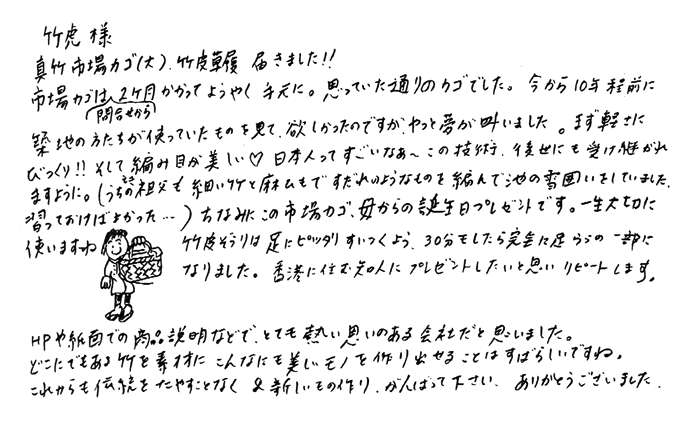 竹虎 様
真竹市場カゴ(大)、竹皮草履 届きました!!
市場カゴは2ヶ月かかってようやく手元に。思っていた通りのカゴでした。今から10年程前に
(問合せから)
築地の方たちが使っていたものを見て、欲しかったのですが、やっと夢が叶いました。まず軽さに
びっくり!! そして編み目が美しい♡ 日本人ってすごいなあ〜 この技術、後世にも受け継がれ
ますように。(うちの祖父も 細い竹と麻ひもですだれのようなものを編んで池の雪囲いをしていました。
習っておけばよかった…) ちなみにこの市場カゴ、母からの誕生日プレゼントです。一生大切に
使いますね
竹皮ぞうりは足にピッタリすいつくよう、30分もしたら完全に足うらの一部に
なりました。香港に住む知人にプレゼントしたいと思いリピートします。
HPや紙面での商品説明などで、とても熱い思いのある会社だと思いました。
どこにでもある竹を素材にこんなにも美しいモノを作り出せることはすばらしいですね。
これからも伝統をたやすことなく & 新しいもの作り、がんばって下さい。ありがとうございました。